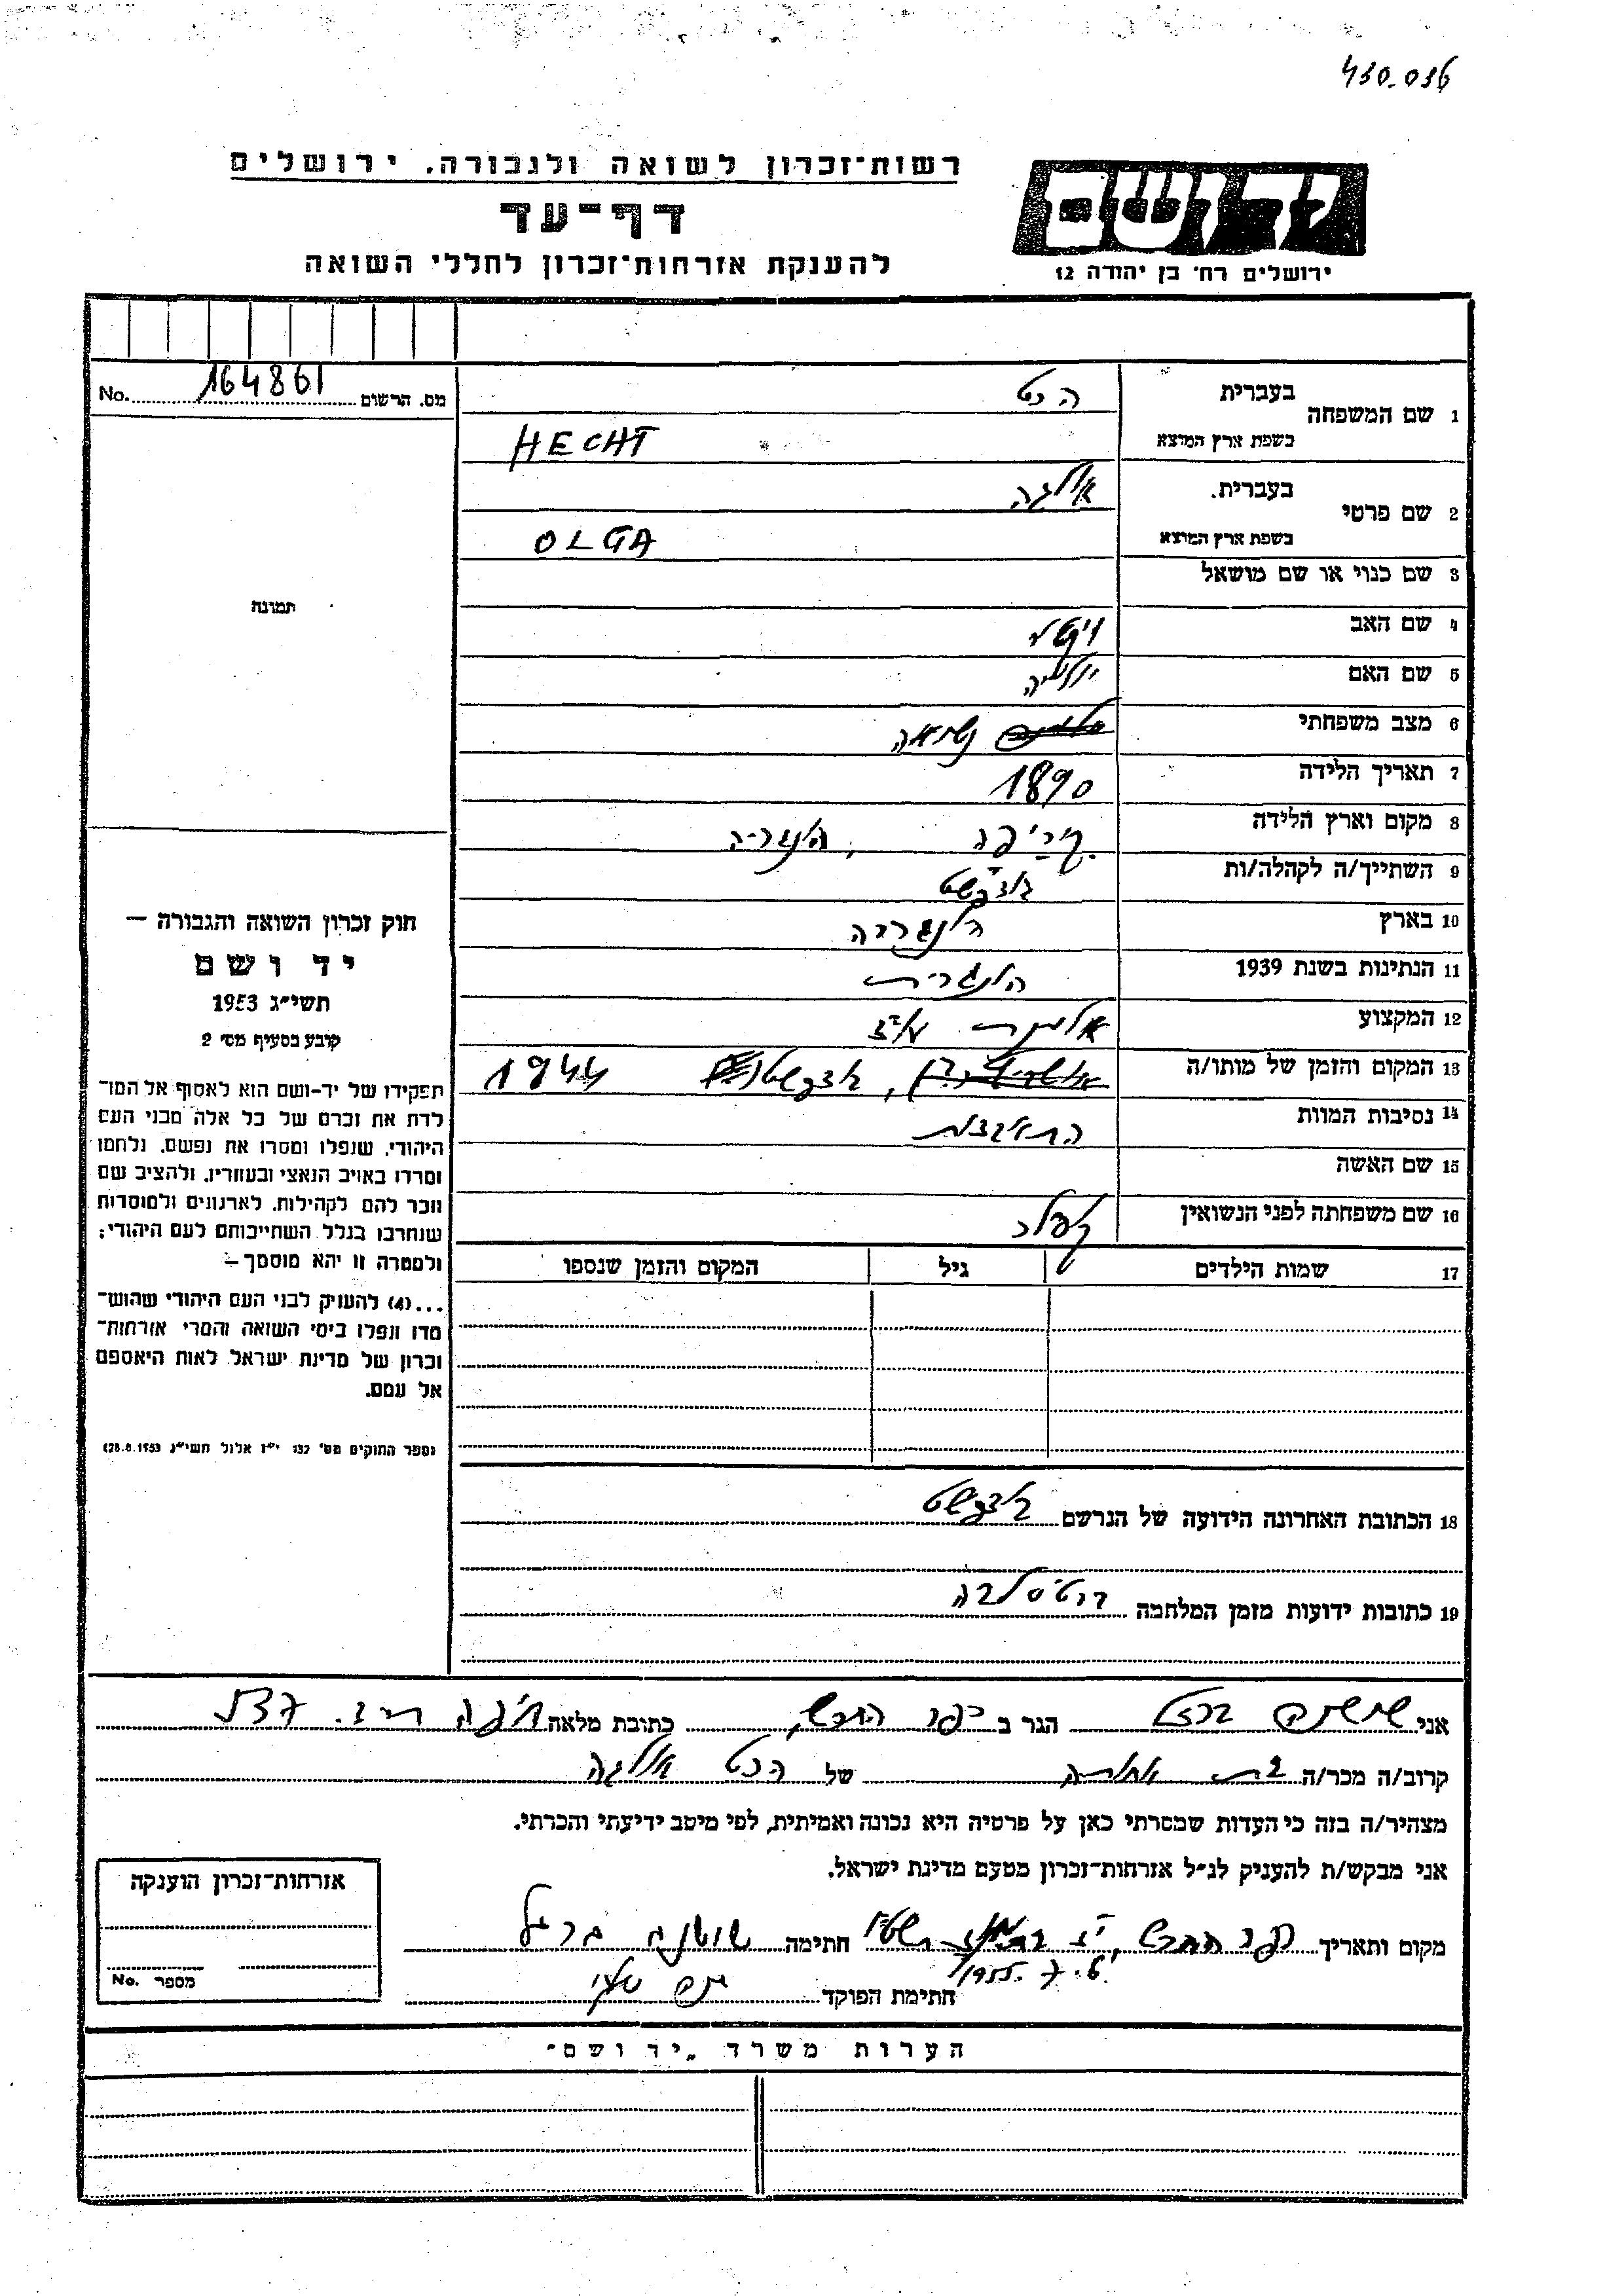 430.036
רשות־זכרון לשואה ולגבורה, ירושלים
יד ושם
דף־עד
להענקת אזרחות־זכרון לחללי השואה
ירושלים רח׳ בן יהודה 12
מס. הרשום 164861 No.
1 שם המשפחה בעברית הכט
בשפת ארץ המוצא HECHT
2 שם פרטי בעברית. אולגה
בשפת ארץ המוצא OLGA
3 שם כנוי או שם מושאל
תמונה
4 שם האב
5 שם האם
6 מצב משפחתי נשואה
7 תאריך הלידה 1890
8 מקום וארץ הלידה , הונגריה
9 השתייך/ה לקהלה/ות בודפשט
10 בארץ הונגריה
11 הנתינות בשנת 1939 הונגרית
12 המקצוע
13 המקום והזמן של מותו/ה בודפשט 1944
14 נסיבות המוות התאבדות
15 שם האשה
16 שם משפחתה לפני הנשואין
17 שמות הילדים גיל המקום והזמן שנספו
חוק זכרון השואה והגבורה –
יד ושם
תשי״ג 1953
קובע בסעיף מס׳ 2
תפקידו של יד־ושם הוא לאסוף אל המו־
לדת את זכרם של כל אלה מבני העם
היהודי, שנפלו ומסרו את נפשם, נלחמו
ומרדו באויב הנאצי ובעוזריו, ולהציב שם
וזכר להם לקהילות, לארגונים ולמוסדות
שנחרבו בגלל השתייכותם לעם היהודי;
ולמטרה זו יהא מוסמך –
...(4) להעניק לבני העם היהודי שהוש־
מדו ונפלו בימי השואה והמרי אזרחות־
זכרון של מדינת ישראל לאות היאספם
אל עמם.
(ספר החוקים מס׳ 132 י״ז אלול תשי״ג 28.8.1953)
18 הכתובת האחרונה הידועה של הנרשם בודפשט
19 כתובות ידועות מזמן המלחמה ברטיסלבה
אני שושנה ברזל הגר ב כפר החרש כתובת מלאה
קרוב/ה מכר/ה של הכט אולגה
מצהיר/ה בזה כי העדות שמסרתי כאן על פרטיה היא נכונה ואמיתית, לפי מיטב ידיעתי והכרתי.
אני מבקש/ת להעניק לנ״ל אזרחות־זכרון מטעם מדינת ישראל.
מקום ותאריך כפר החרש, חתימה שושנה ברזל
6.7.1955
חתימת הפוקד
אזרחות־זכרון הוענקה
מספר No.
הערות משרד „יד ושם״